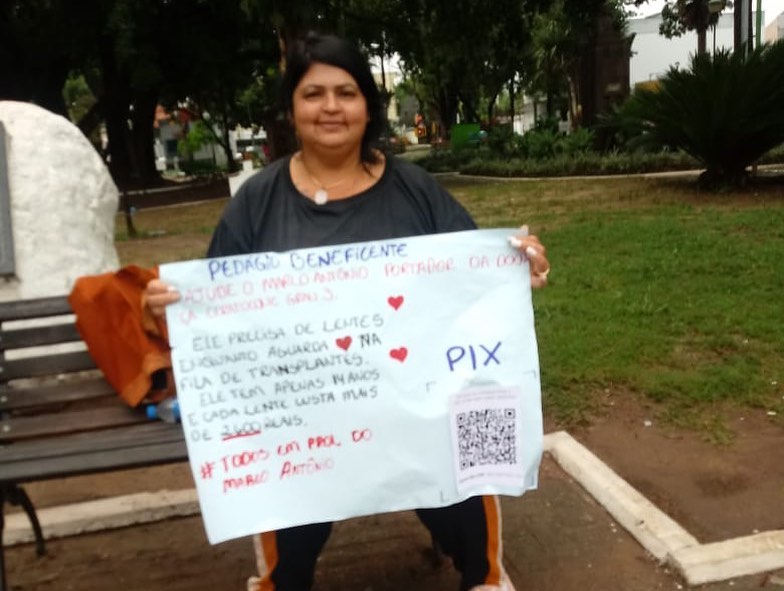 PEDÁGIO BENEFICENTE
AJUDE O MARCO ANTÔNIO PORTADOR DA DOEN
ÇA CERATOCONE GRAU 3.
ELE PRECISA DE LENTES
ENQUANTO AGUARDA NA
FILA DE TRANSPLANTES.
ELE TEM APENAS 14 ANOS
E CADA LENTE CUSTA MAIS
DE 3.600 REAIS.
# TODOS EM PROL DO
MARCO ANTÔNIO
PIX